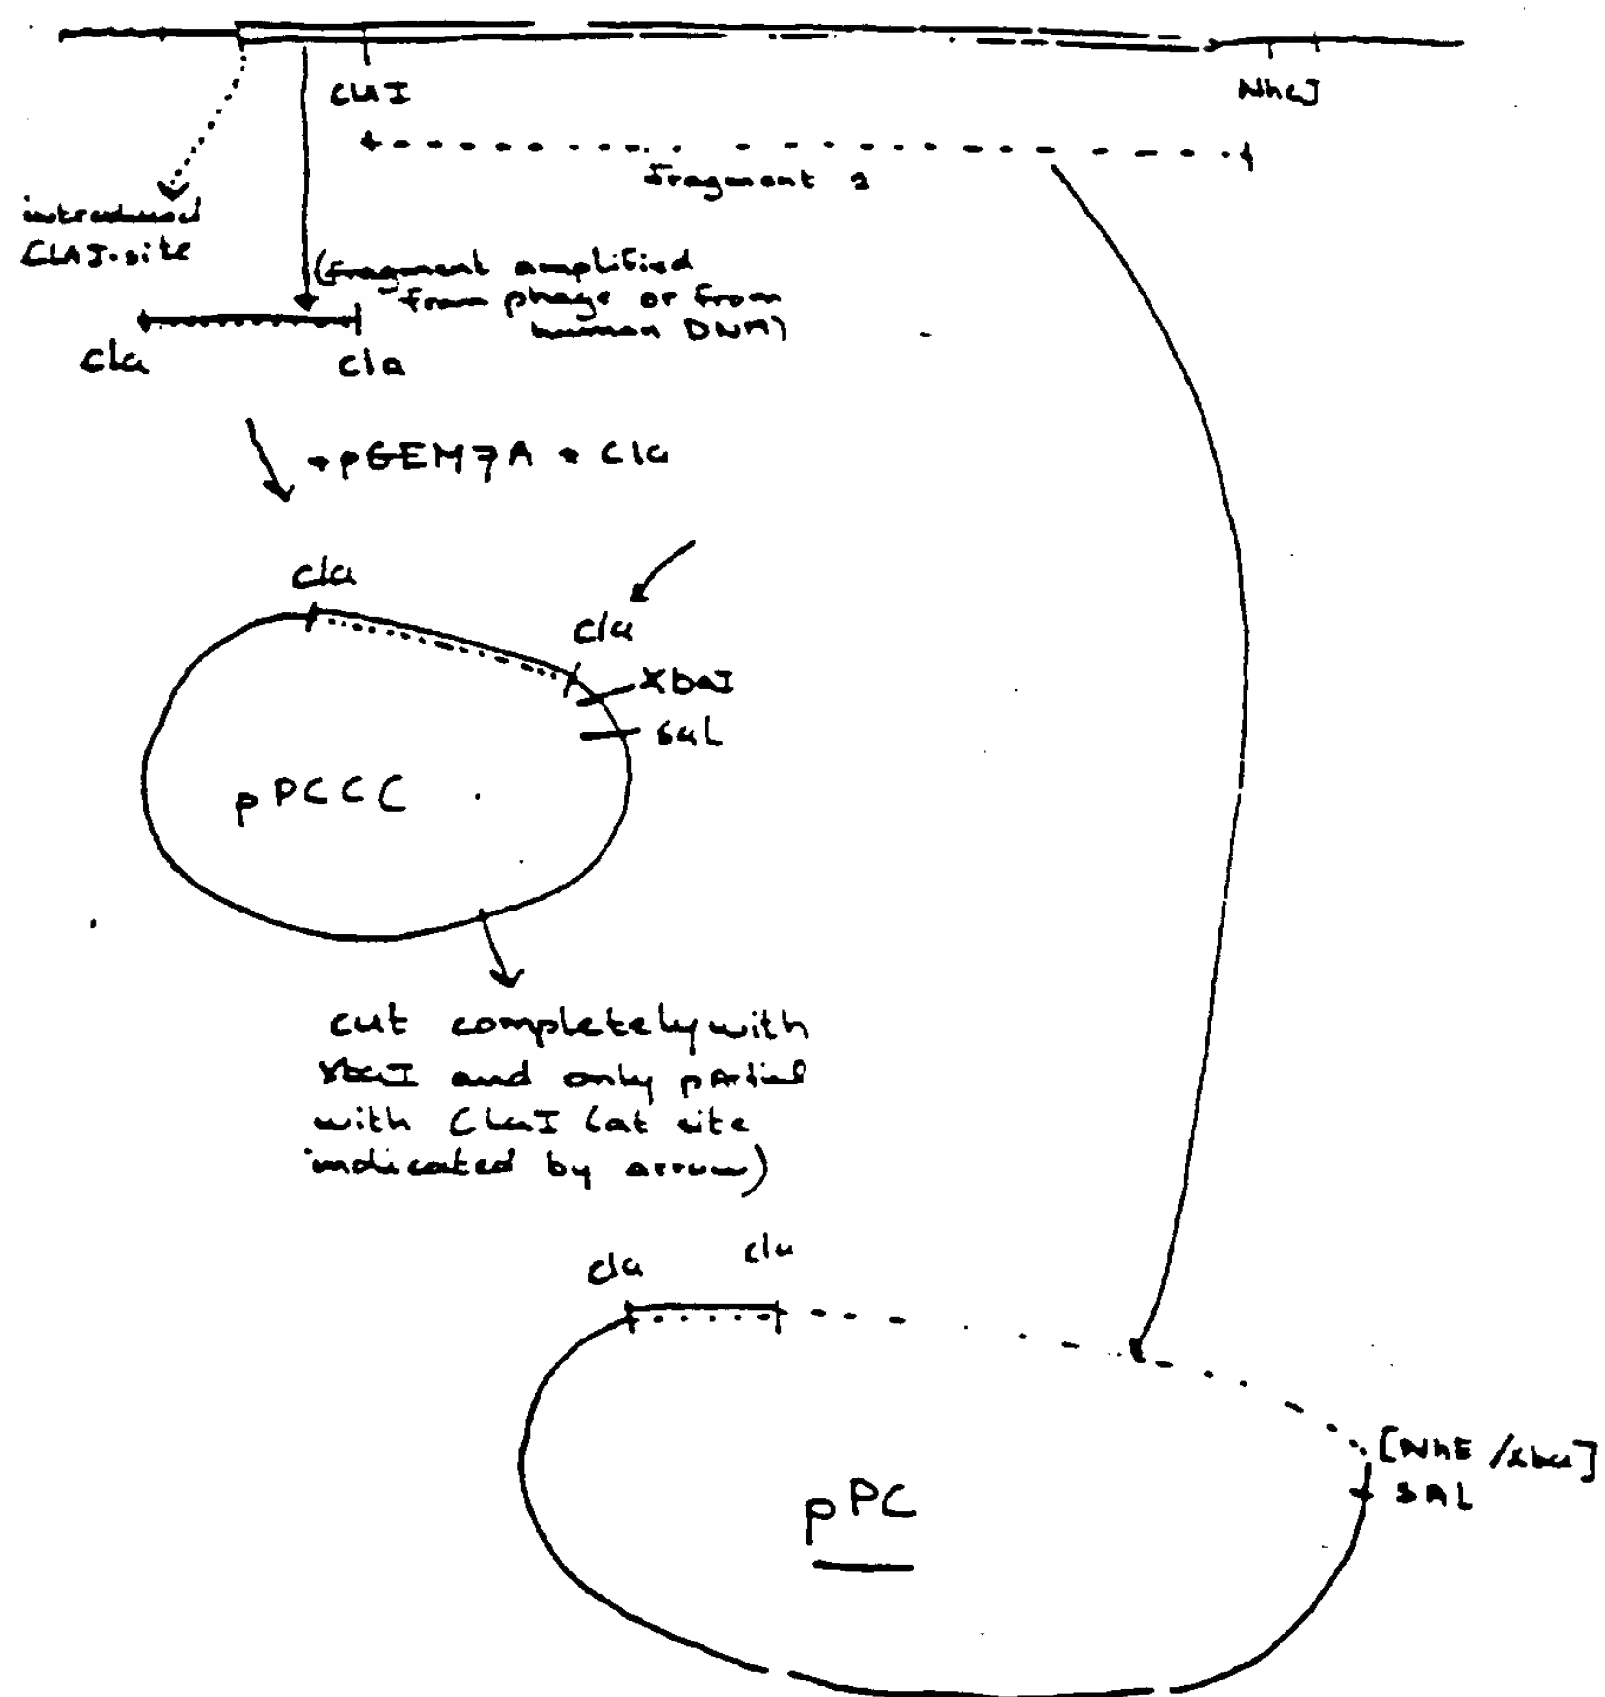 CLAI
NheI
fragment 2
introduced
CLAI-site
(fragment amplified
from phage or from
human DNA)
cla
cla
+ pGEM7A + Cla
cla
cla
XbaI
sal
pPCCC
cut completely with
XbaI and only partial
with ClaI (at site
indicated by arrow)
cla
cla
[NhE /xba]
SAL
pPC